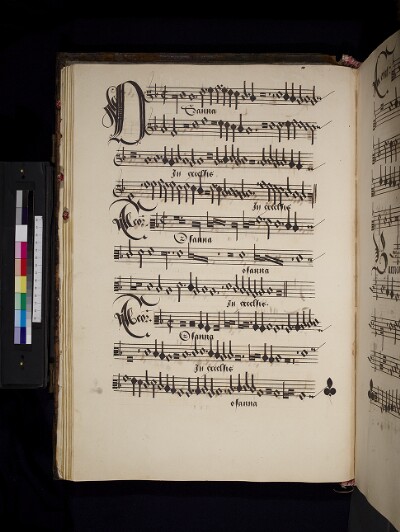 Osanna
In excelsis
In excelsis
Osanna
osanna
In excelsis.
Osanna
In excelsis
osanna